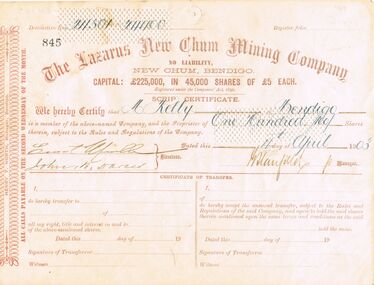 Register folio
845
The Lazarus New Chum Mining Company
NO LIABILITY,
NEW CHUM, BENDIGO.
CAPITAL: £225,000, IN 45,000 SHARES OF £5 EACH.
SCRIP CERTIFICATE.
We hereby Certify that M Kelly Bendigo
is a member of the above-named Company, and the Proprietor of One Hundred Shares
therein, subject to the Rules and Regulations of the Company.
Dated this day of April 1903
Directors.
Manager.
ALL CALLS PAYABLE ON THE SECOND WEDNESDAY OF THE MONTH.
CERTIFICATE OF TRANSFER.
I,
do hereby transfer to
of
all my right, title and interest in and to
of the above-mentioned shares.
Dated this day of 19
Signature of Transferror
Witness
I,
of
do hereby accept the annexed transfer, subject to the Rules and
Regulations of the said Company, and agree to hold the said shares
therein mentioned upon the same terms and conditions as the said
held the same.
Dated this day of 19
Signature of Transferree
Witness